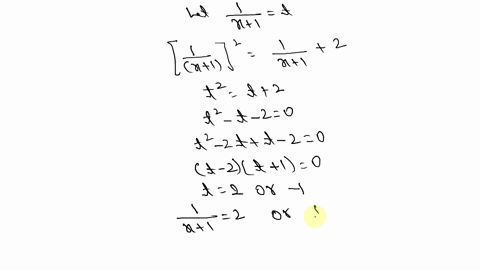 Let 1/(x+1) = t
[1/(x+1)]² = 1/(x+1) + 2
t² = t + 2
t² - t - 2 = 0
t² - 2t + t - 2 = 0
(t - 2)(t + 1) = 0
t = 2 or -1
1/(x+1) = 2 or